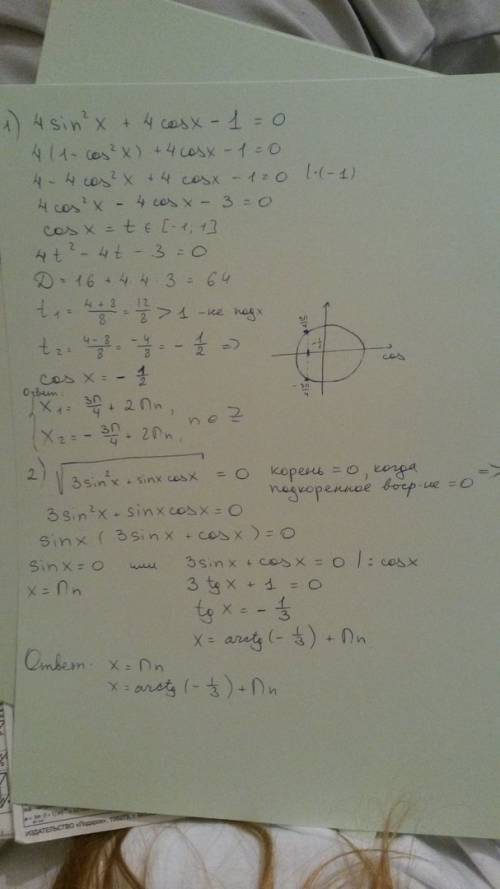 1) 4 sin²x + 4 cosx - 1 = 0
4(1 - cos²x) + 4cosx - 1 = 0
4 - 4cos²x + 4cosx - 1 = 0 |·(-1)
4cos²x - 4cosx - 3 = 0
cosx = t ∈ [-1; 1]
4t² - 4t - 3 = 0
D = 16 + 4·4·3 = 64
t₁ = (4+8)/8 = 12/8 > 1 - не подх
t₂ = (4-8)/8 = -4/8 = -1/2 =>
cos x = -1/2
Ответ:
x₁ = 3π/4 + 2πn,
x₂ = -3π/4 + 2πn, n ∈ Z
3π/4
-1/2
-3π/4
cos
2) √(3sin²x + sinx cosx) = 0 корень = 0, когда
подкоренное выр-ие = 0 =>
3sin²x + sinxcosx = 0
sinx (3sinx + cosx) = 0
sinx = 0 или 3sinx + cosx = 0 |: cosx
x = πn 3 tgx + 1 = 0
tgx = -1/3
x = arctg(-1/3) + πn
Ответ: x = πn
x = arctg(-1/3) + πn